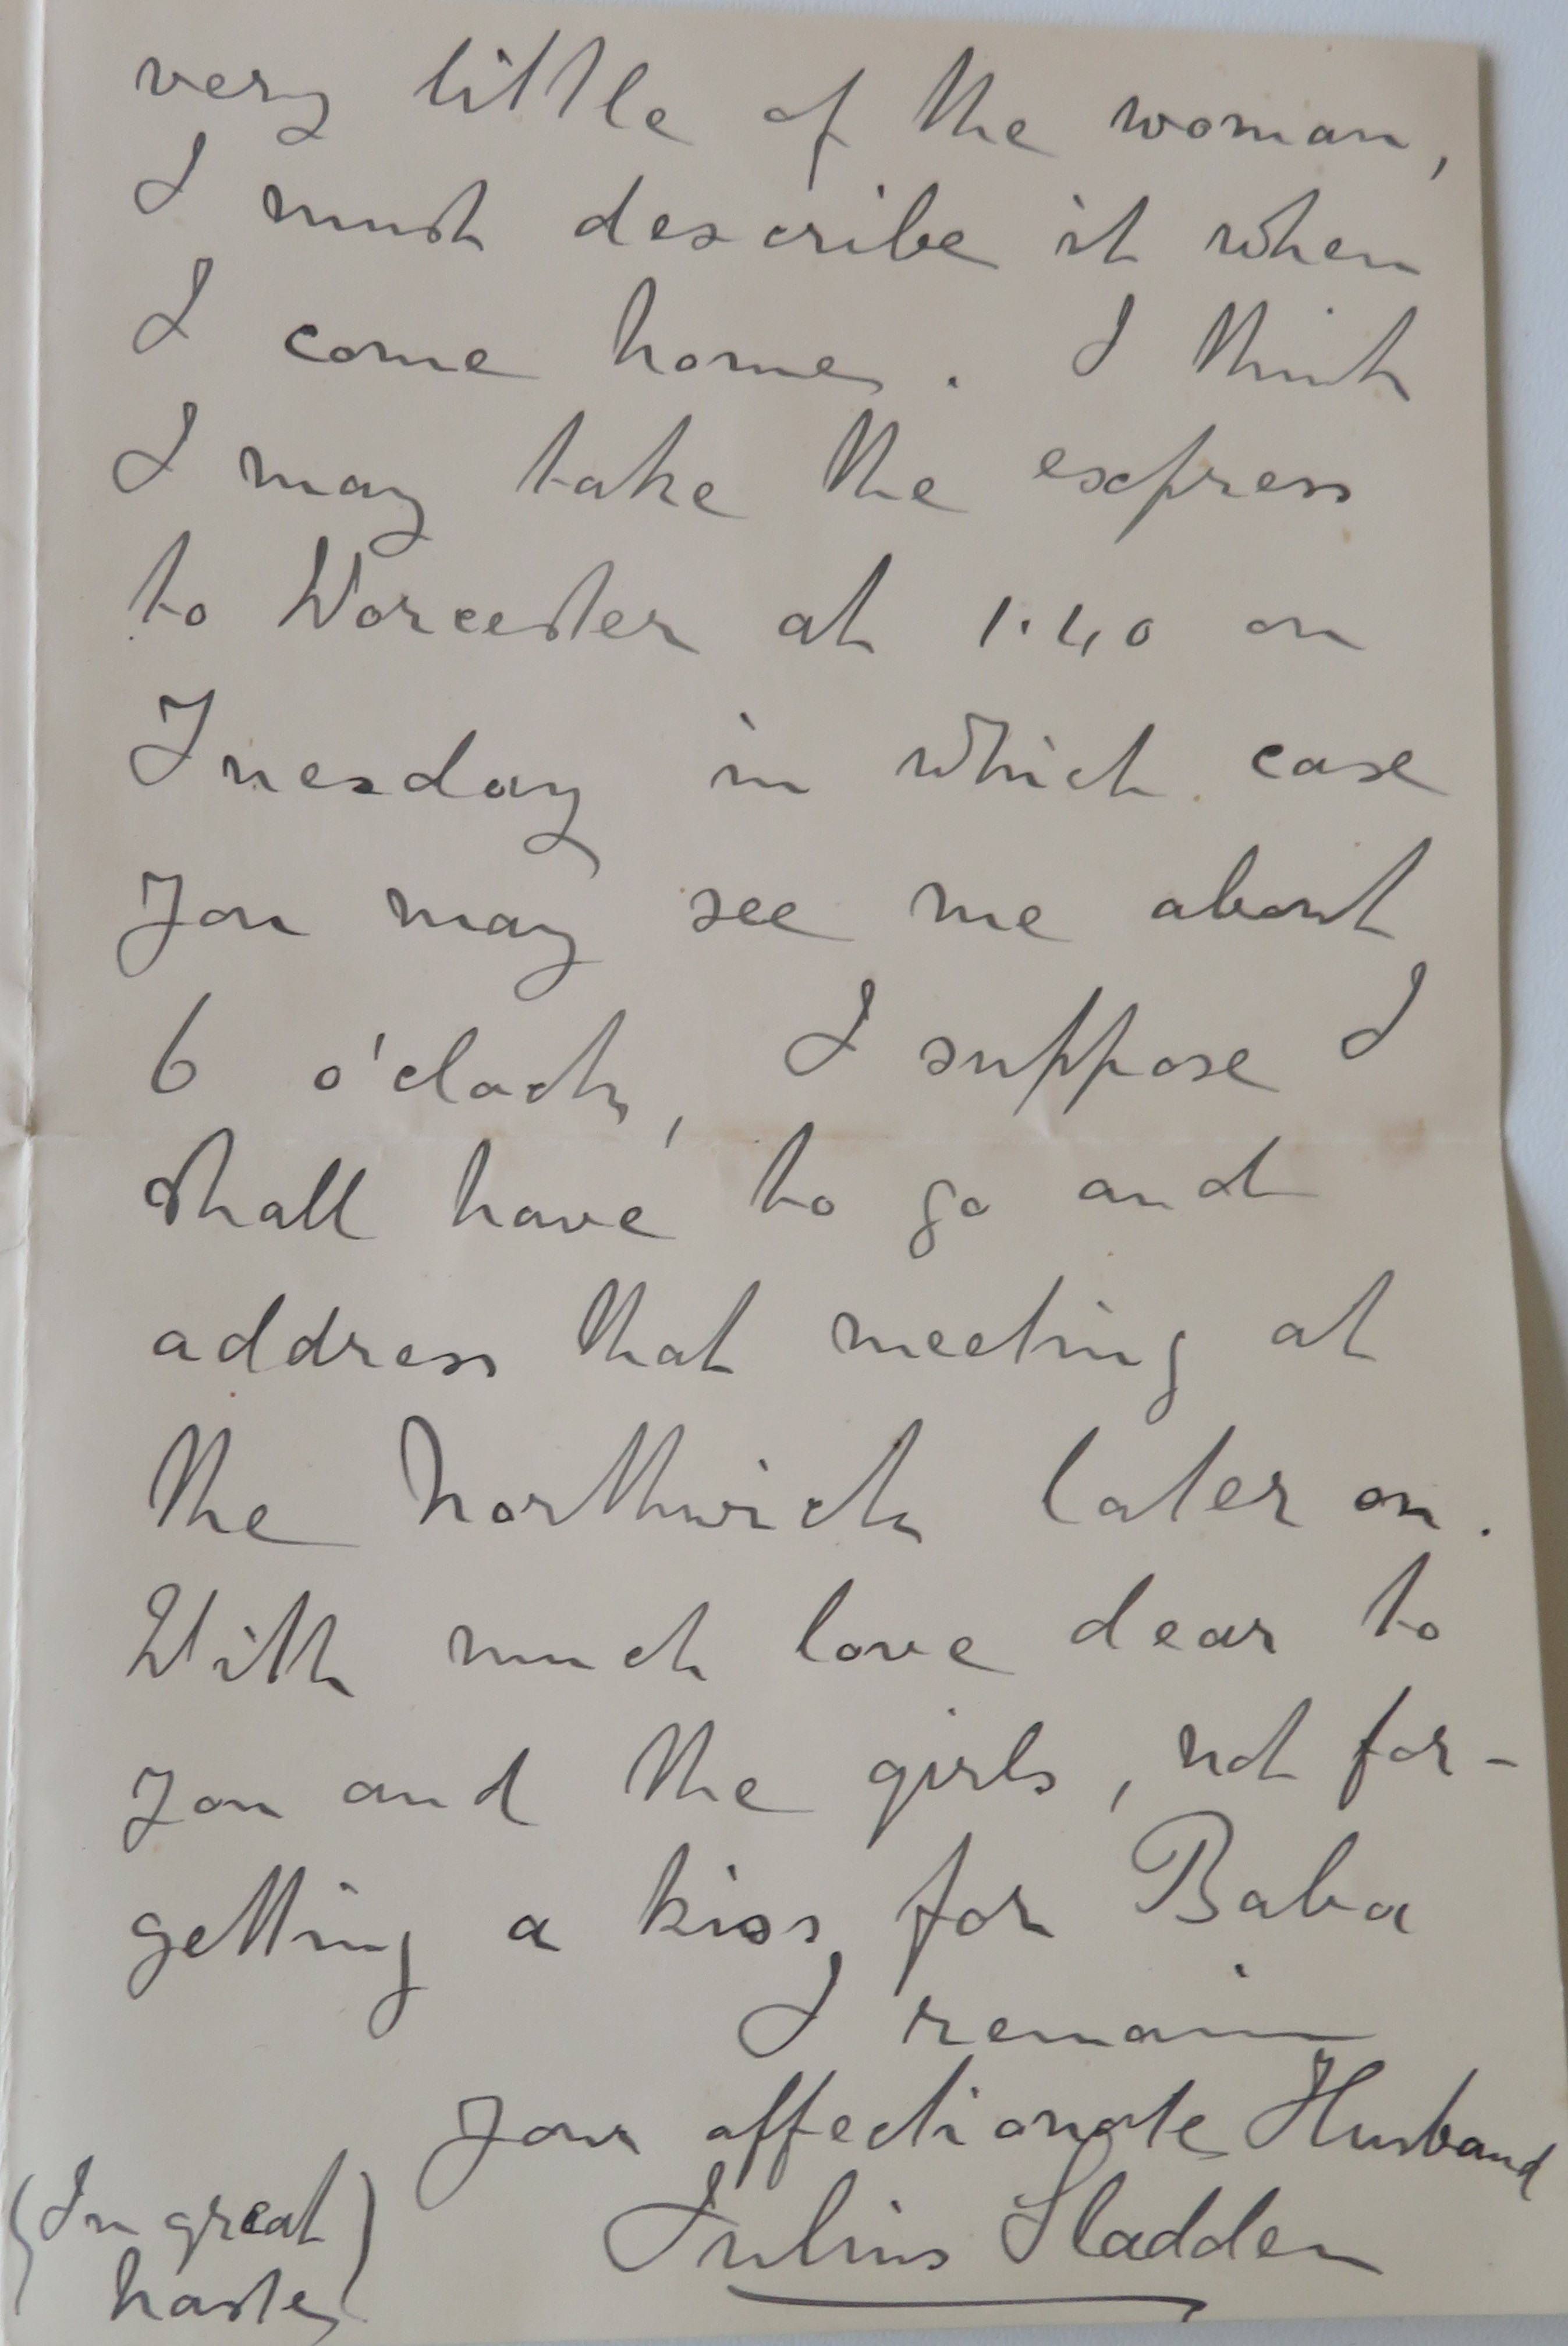 very little of the woman,
I must describe it when
I come home. I think
I may take the express
to Worcester at 1.40 on
Tuesday in which case
you may see me about
6 o'clock, I suppose I
shall have to go and
address that meeting at
the Northwick later on.
With much love dear to
you and the girls, not for-
getting a kiss for Baba
I remain
your affectionate Husband
Julius Sladden
(In great
haste)